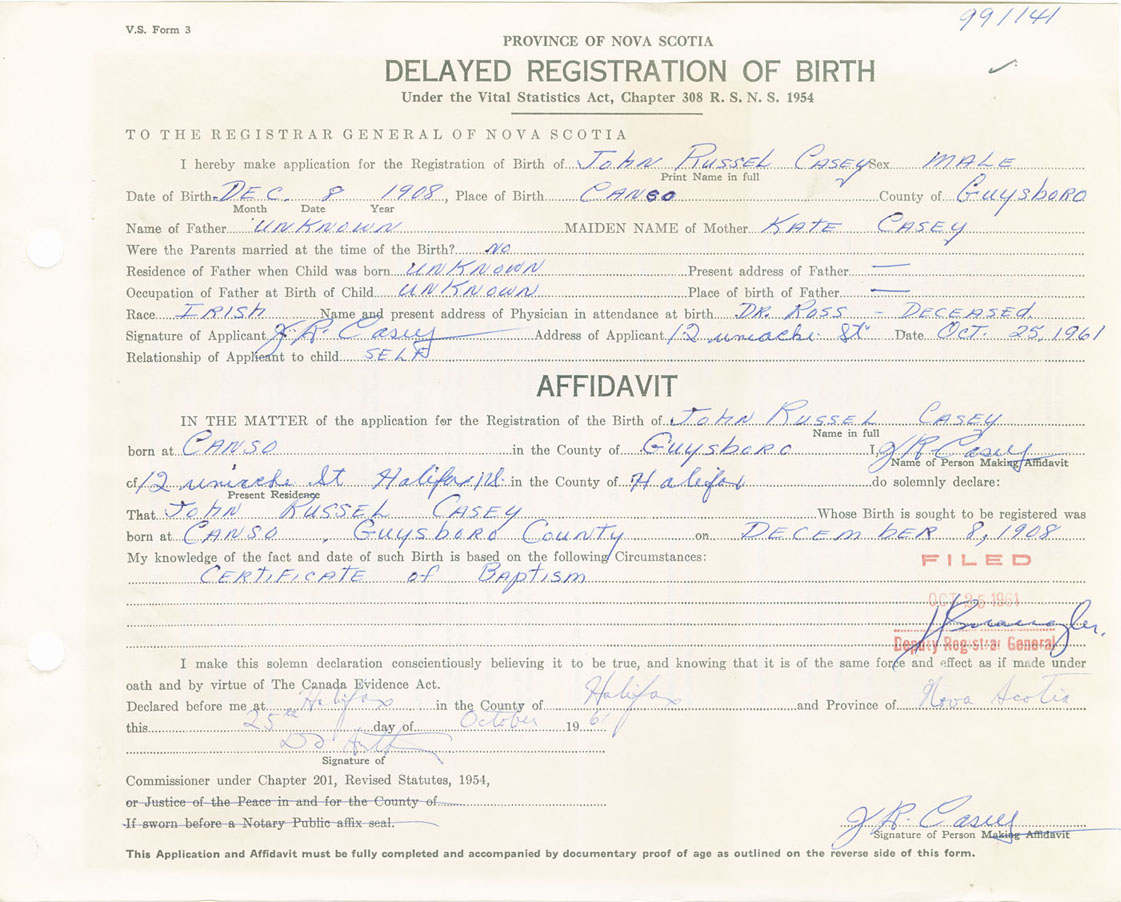 991141
V.S. Form 3
PROVINCE OF NOVA SCOTIA
DELAYED REGISTRATION OF BIRTH
Under the Vital Statistics Act, Chapter 308 R. S. N. S. 1954
TO THE REGISTRAR GENERAL OF NOVA SCOTIA
I hereby make application for the Registration of Birth of JOHN RUSSEL CASEY Sex MALE
Print Name in full
Date of Birth DEC. 8 1908, Place of Birth CANSO County of Guysboro
Month Date Year
Name of Father UNKNOWN MAIDEN NAME of Mother KATE CASEY
Were the Parents married at the time of the Birth? NO
Residence of Father when Child was born UNKNOWN Present address of Father —
Occupation of Father at Birth of Child UNKNOWN Place of birth of Father —
Race IRISH Name and present address of Physician in attendance at birth DR. ROSS - DECEASED
Signature of Applicant J. R. Casey Address of Applicant 12 uniacke St Date OCT. 25, 1961
Relationship of Applicant to child SELF
AFFIDAVIT
IN THE MATTER of the application for the Registration of the Birth of JOHN RUSSEL CASEY
Name in full
born at CANSO in the County of Guysboro I, J R Casey
Name of Person Making Affidavit
of 12 uniacke St Halifax N.S. in the County of Halifax do solemnly declare:
Present Residence
That JOHN RUSSEL CASEY Whose Birth is sought to be registered was
born at CANSO, Guysboro County on DECEMBER 8, 1908
My knowledge of the fact and date of such Birth is based on the following Circumstances:
CERTIFICATE of BAPTISM
FILED
OCT 25 1961
Deputy Registrar General
I make this solemn declaration conscientiously believing it to be true, and knowing that it is of the same force and effect as if made under
oath and by virtue of The Canada Evidence Act.
Declared before me at Halifax in the County of Halifax and Province of Nova Scotia
this 25th day of October 1961
Signature of
Commissioner under Chapter 201, Revised Statutes, 1954,
or Justice of the Peace in and for the County of
If sworn before a Notary Public affix seal.
J R. Casey
Signature of Person Making Affidavit
This Application and Affidavit must be fully completed and accompanied by documentary proof of age as outlined on the reverse side of this form.